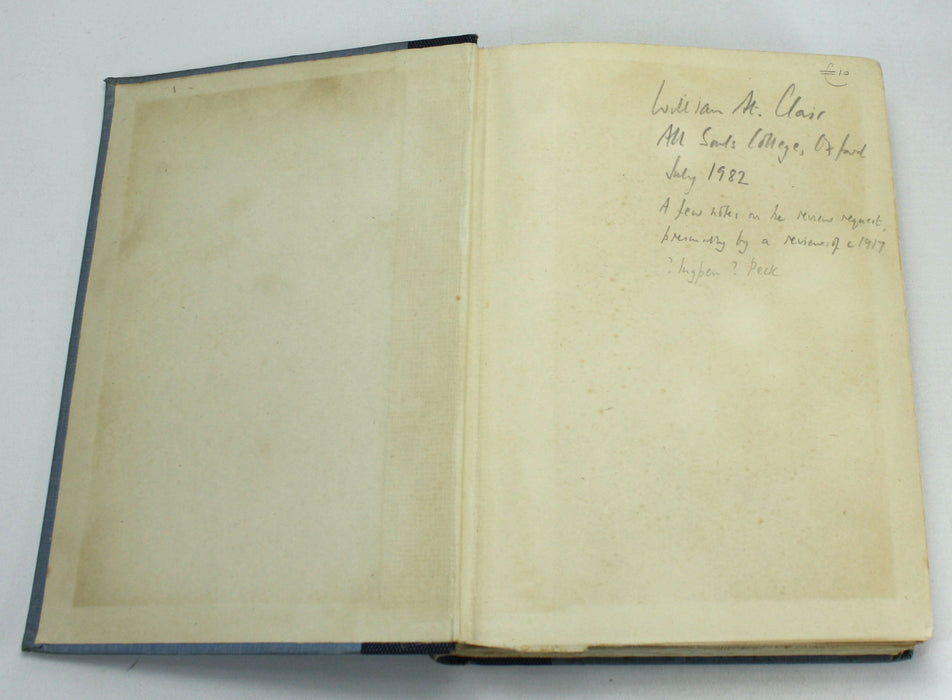 £10
William St. Clair
All Souls College, Oxford
July 1982
A few notes on the review request,
presumably by a reviewer of c 1917
? Ingpen ? Peck